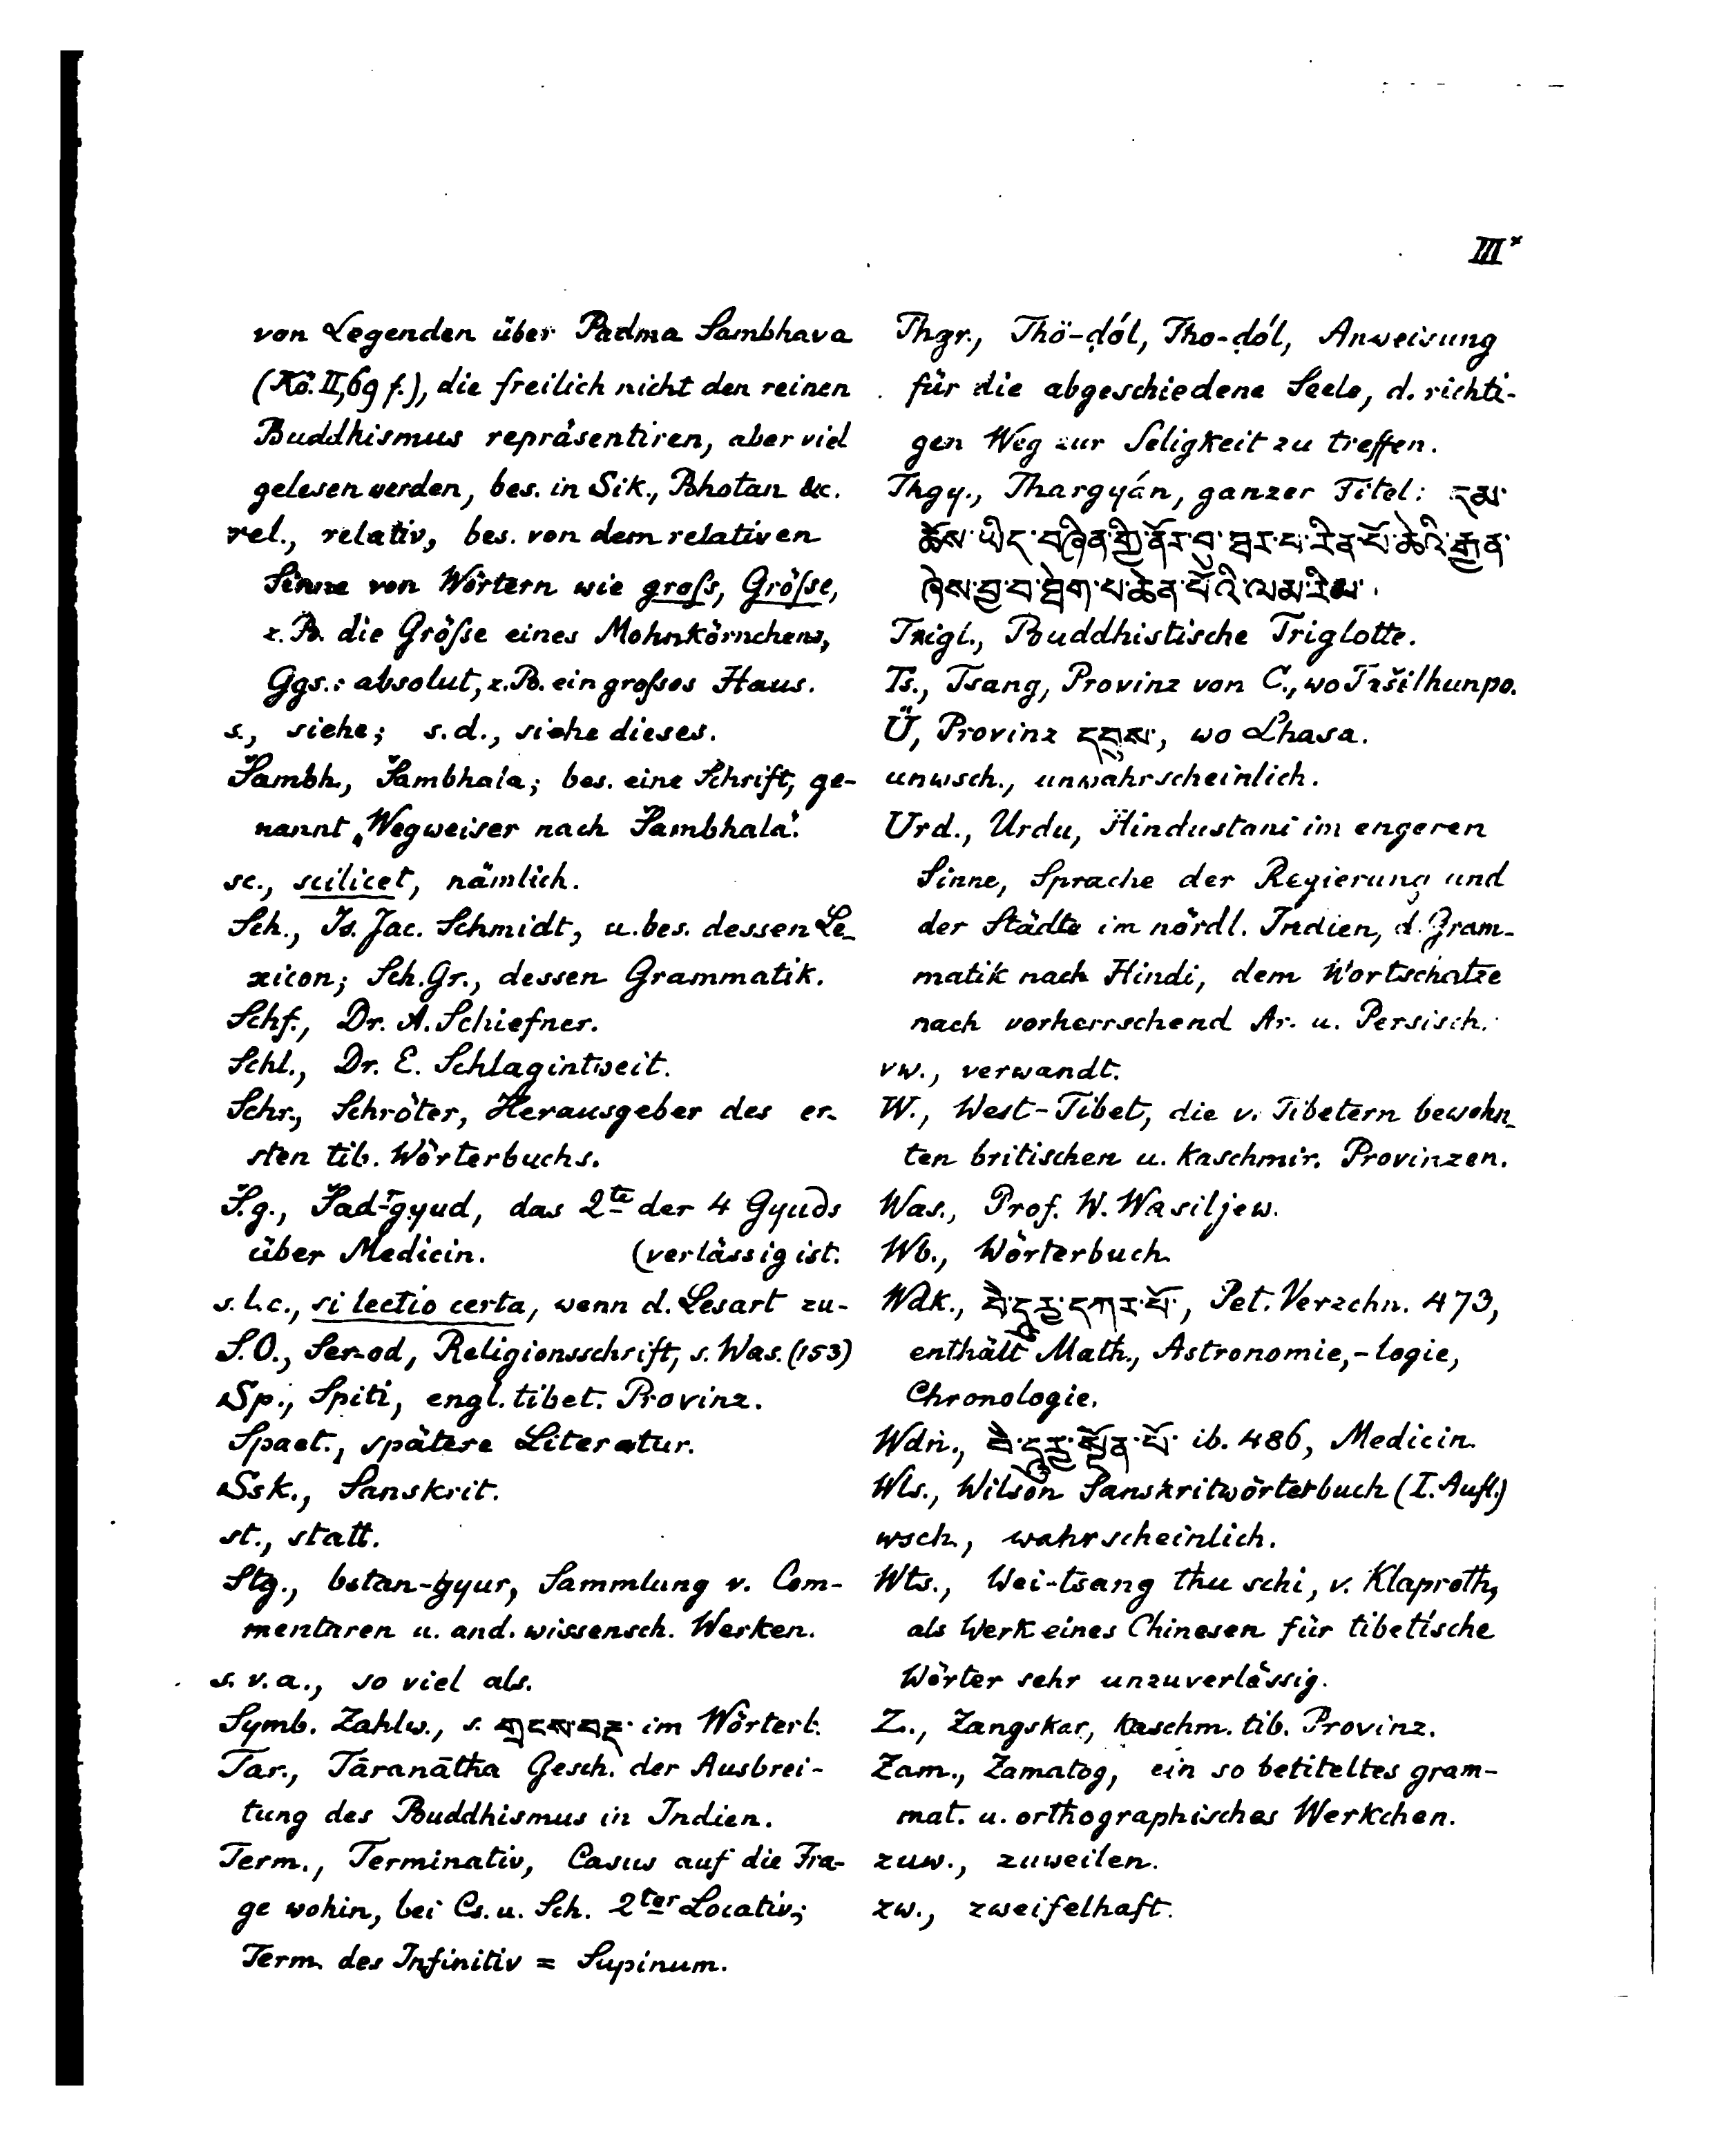 III*
von Legenden über Padma Sambhava
(Kö. II, 69 f.), die freilich nicht den reinen
Buddhismus repräsentiren, aber viel
gelesen werden, bes. in Sik., Bhotan &c.
rel., relativ, bes. von dem relativen
Sinne von Wörtern wie groſs, Gröſse,
z. B. die Gröſse eines Mohnkörnchens,
Ggs.: absolut, z. B. ein groſses Haus.
s., siehe; s. d., siehe dieses.
Šambh., Šambhala; bes. eine Schrift, ge-
nannt „Wegweiser nach Šambhala“.
sc., scilicet, nämlich.
Sch., Is. Jac. Schmidt, u. bes. dessen Le-
xicon; Sch. Gr., dessen Grammatik.
Schf., Dr. A. Schiefner.
Schl., Dr. E. Schlagintweit.
Schr., Schröter, Herausgeber des er-
sten tib. Wörterbuchs.
Š. g., Šad-gyud, das 2te der 4 Gyuds
über Medicin. (verlässig ist.
s. l. c., si lectio certa, wenn d. Lesart zu-
S. O., Ser-od, Religionsschrift, s. Was. (153)
Sp., Spiti, engl. tibet. Provinz.
Spaet., spätere Literatur.
Ssk., Sanskrit.
st., statt.
Stg., bstan-gyur, Sammlung v. Com-
mentaren u. and. wissensch. Werken.
s. v. a., so viel als.
Symb. Zahlw., s. གྲངས་བརྡ་ im Wörterb.
Tar., Tāranātha Gesch. der Ausbrei-
tung des Buddhismus in Indien.
Term., Terminativ, Casus auf die Fra-
ge wohin, bei Cs. u. Sch. 2ter Locativ;
Term. des Infinitiv = Supinum.
Thgr., Thö-ḍól, Tho-ḍól, Anweisung
für die abgeschiedene Seele, d. richti-
gen Weg zur Seligkeit zu treffen.
Thgy., Thargyán, ganzer Titel: དམ་
ཆོས་ཡིད་བཞིན་གྱི་ནོར་བུ་ཐར་པ་རིན་པོ་ཆེའི་རྒྱན་
ཞེས་བྱ་བ་ཐེག་པ་ཆེན་པོའི་ལམ་རིམ་.
Trigl., Buddhistische Triglotte.
Ts., Tsang, Provinz von C., wo Tašilhunpo.
Ü, Provinz དབུས་, wo Lhasa.
unwsch., unwahrscheinlich.
Urd., Urdu, Hindustani im engeren
Sinne, Sprache der Regierung und
der Städte im nördl. Indien, d. Gram-
matik nach Hindi, dem Wortschatze
nach vorherrschend Ar. u. Persisch.
vw., verwandt.
W., West-Tibet, die v. Tibetern bewohn-
ten britischen u. kaschmir. Provinzen.
Was., Prof. W. Wasiljew.
Wb., Wörterbuch.
Wdk., བེ་དཱུརྱ་དཀར་པོ་, Pet. Verzchn. 473,
enthält Math., Astronomie, -logie,
Chronologie.
Wdṅ., བེ་དཱུརྱ་སྔོན་པོ་ ib. 486, Medicin.
Wls., Wilson Sanskritwörterbuch (I. Aufl.)
wsch., wahrscheinlich.
Wts., Wei-tsang thu schi, v. Klaproth,
als Werk eines Chinesen für tibetische
Wörter sehr unzuverlässig.
Z., Zangskar, kaschm. tib. Provinz.
Zam., Zamatog, ein so betiteltes gram-
mat. u. orthographisches Werkchen.
zuw., zuweilen.
zw., zweifelhaft.